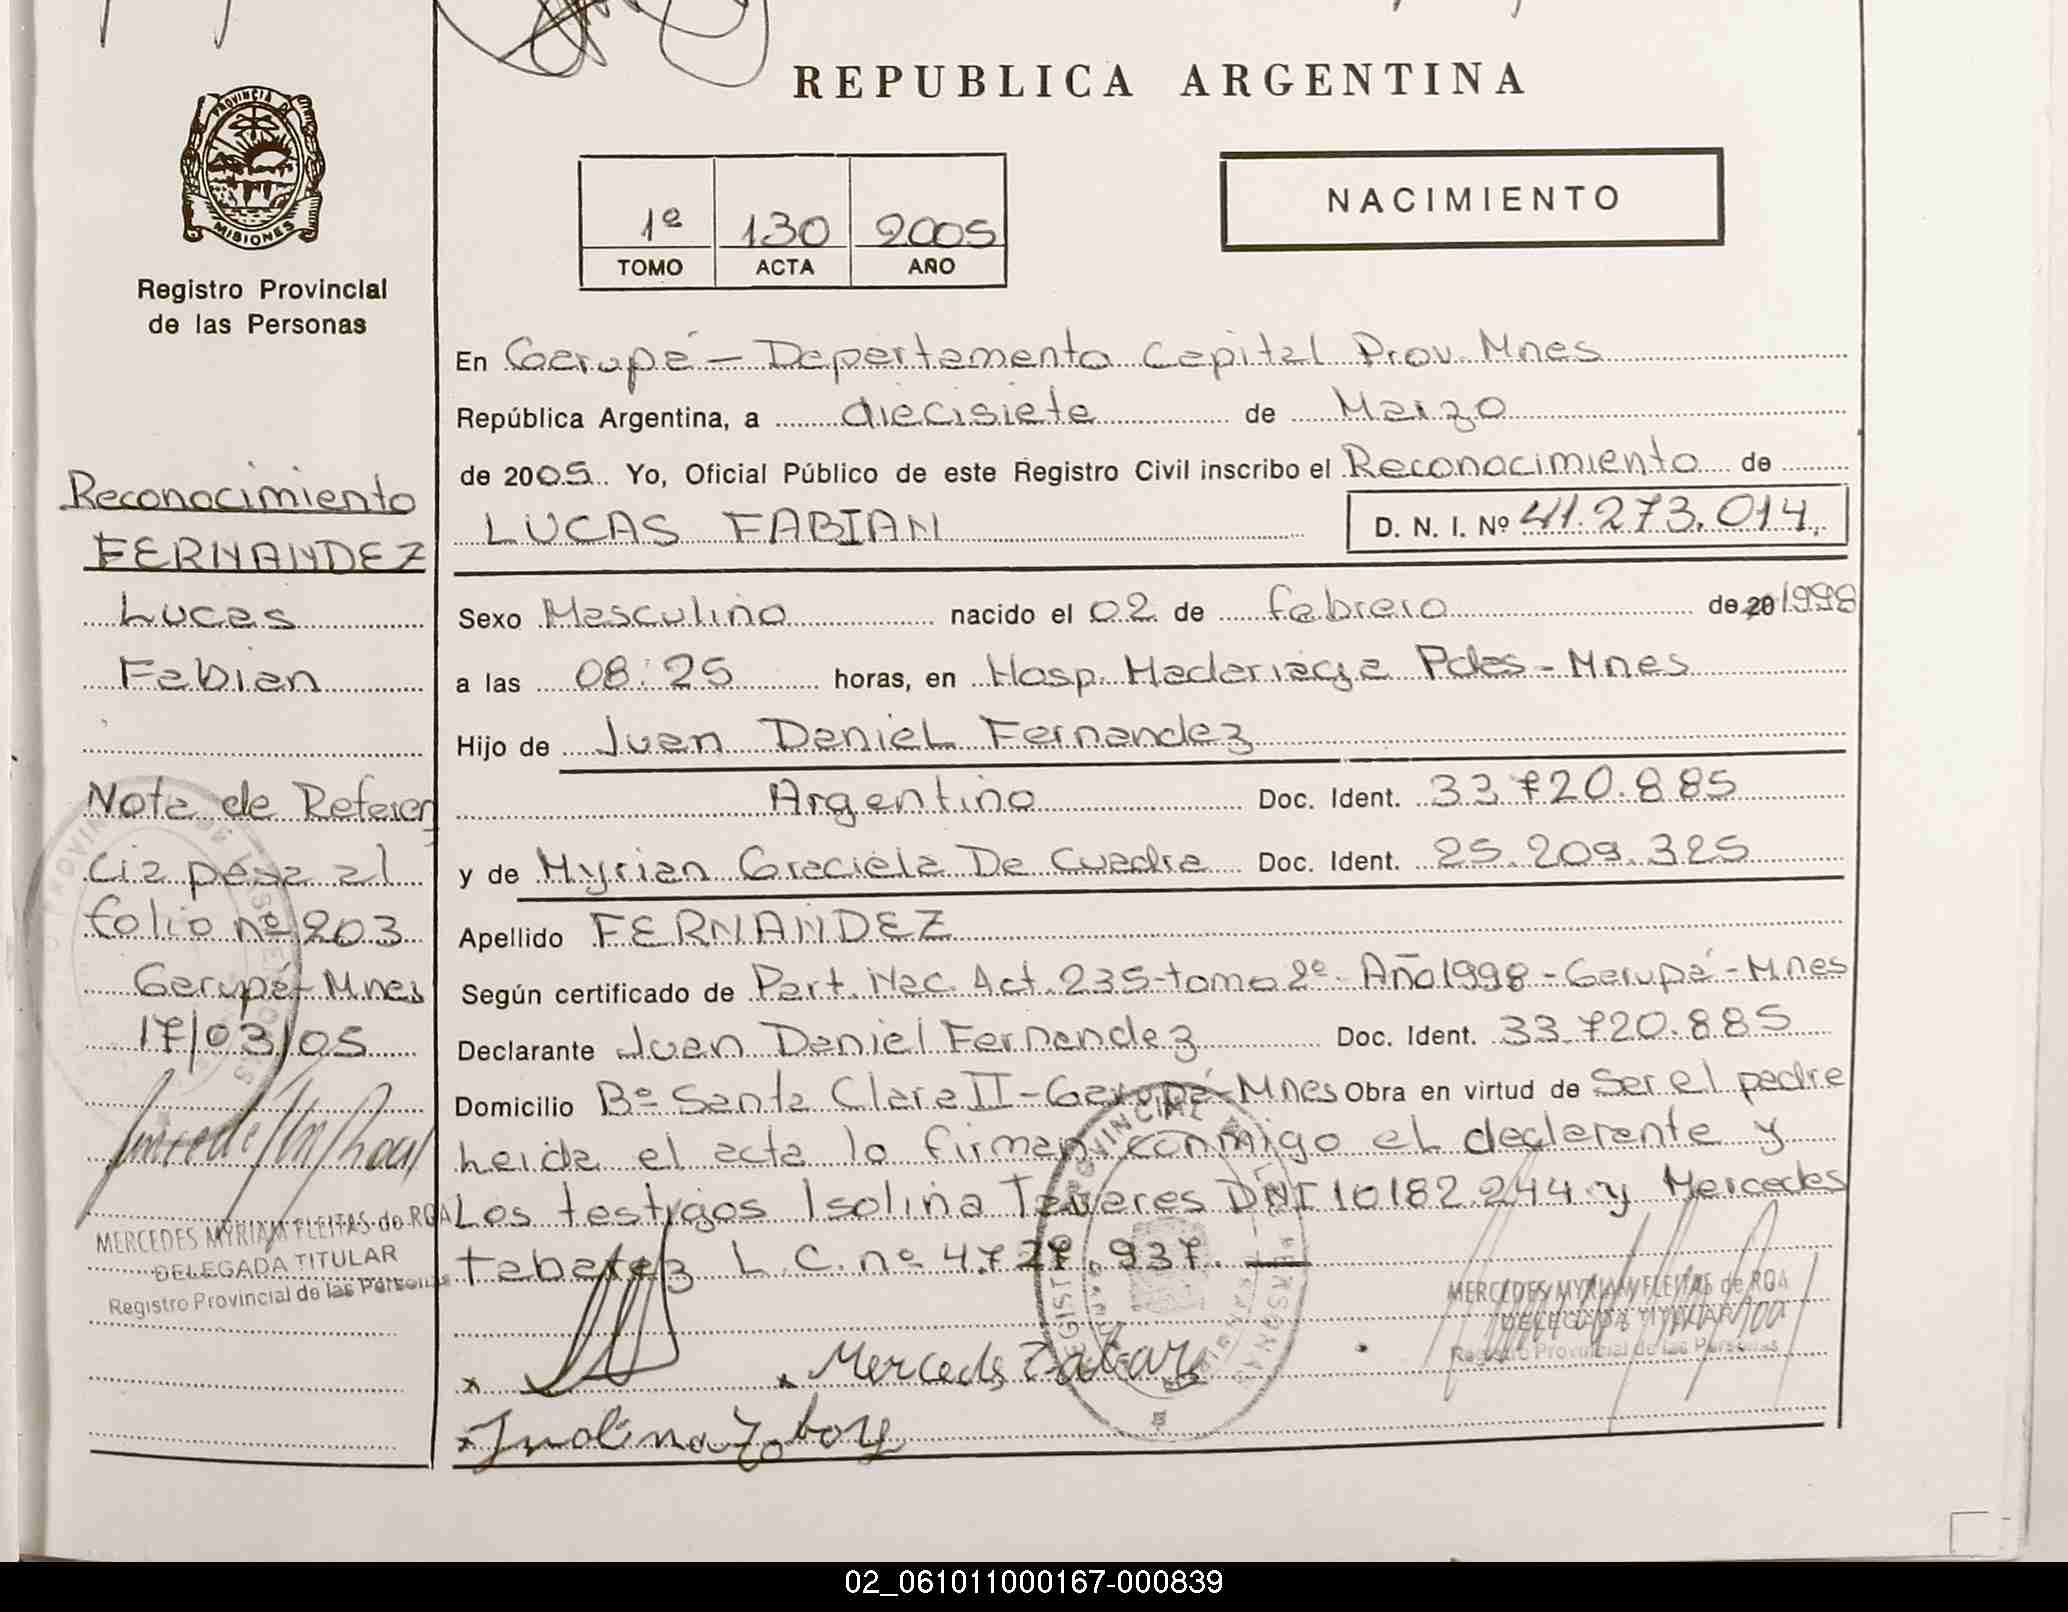 REPUBLICA ARGENTINA
PROVINCIA DE
MISIONES
Registro Provincial
de las Personas
1º 130 2005
TOMO ACTA AÑO
NACIMIENTO
En Garupá - Departamento Capital Prov. Mnes
República Argentina, a diecisiete de Marzo
de 2005 Yo, Oficial Público de este Registro Civil inscribo el Reconocimiento de
LUCAS FABIAN D. N. I. Nº 41.273.014
Sexo Masculino nacido el 02 de febrero de 20 1998
a las 08:25 horas, en Hosp. Madariaga Pdas - Mnes
Hijo de Juan Daniel Fernandez
Argentino Doc. Ident. 33.720.885
y de Myrian Graciela De Cuadra Doc. Ident. 25.209.325
Apellido FERNANDEZ
Según certificado de Part. Nac. Act. 235-tomo 2º- Año 1998 - Garupá - Mnes
Declarante Juan Daniel Fernandez Doc. Ident. 33.720.885
Domicilio Bº Santa Clara II - Garupá - Mnes Obra en virtud de Ser el padre
Leida el acta lo firman conmigo el declarante y
Los testigos Isolina Tavares DNI 10182.244 y Mercedes
tabarez L.C. nº 4.727.937.
Reconocimiento
FERNANDEZ
Lucas
Fabian
Nota de Referen
cia pasa al
folio nº 203
Garupá - Mnes
17/03/05
MERCEDES MYRIAM FLEITAS de ROA
DELEGADA TITULAR
Registro Provincial de las Personas
x x Mercedes
MERCEDES MYRIAM FLEITAS de ROA
DELEGADA TITULAR
Registro Provincial de las Personas
x
02_061011000167-000839